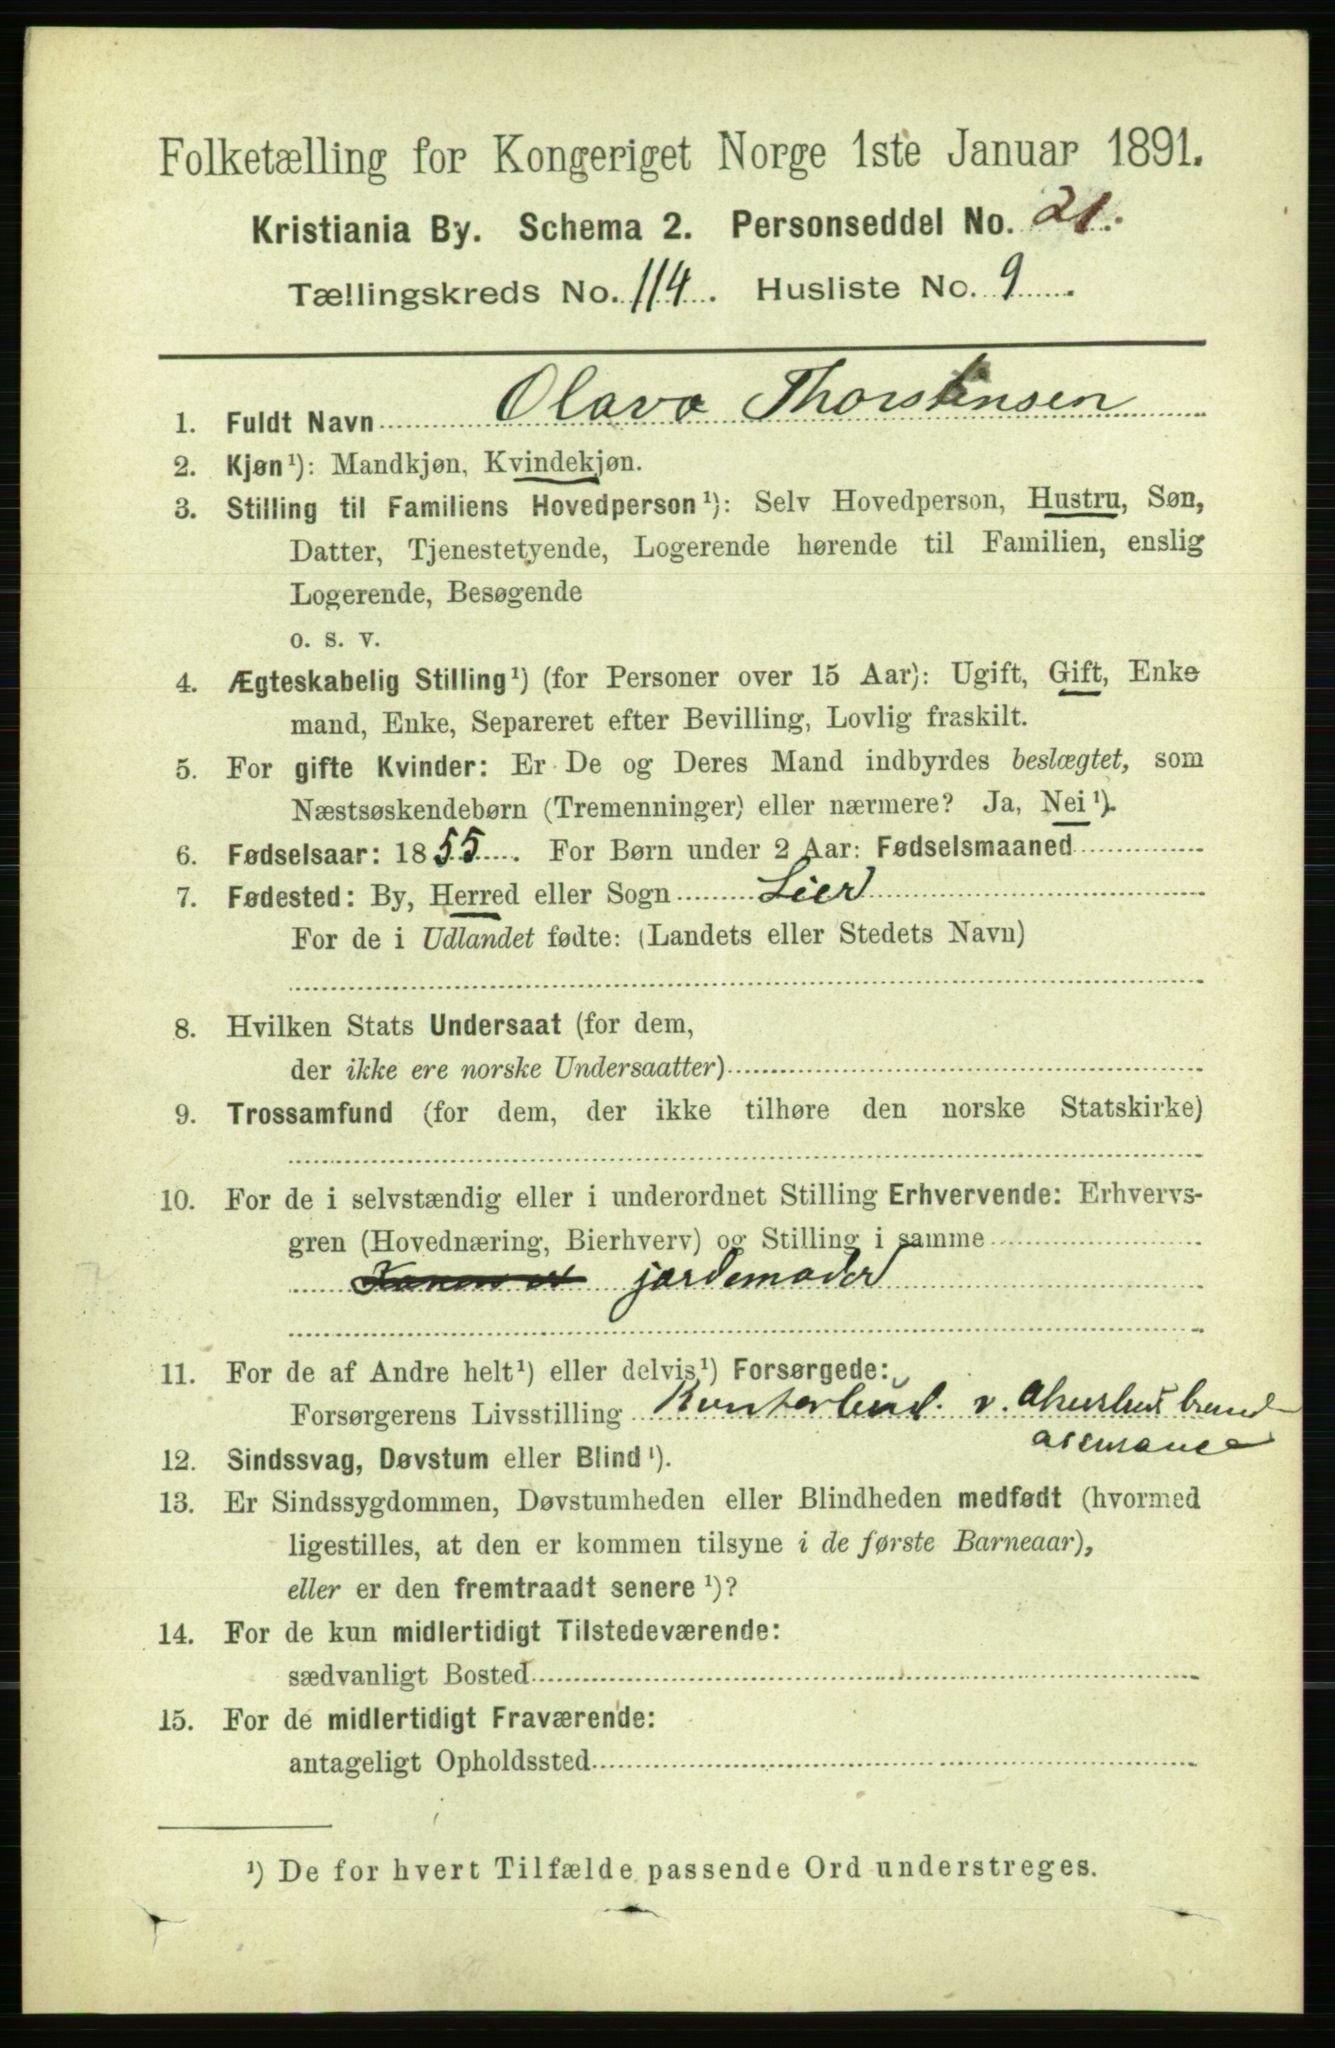 Folketælling for Kongeriget Norge 1ste Januar 1891.
Kristiania By. Schema 2. Personseddel No. 21.
Tællingskreds No. 114. Husliste No. 9
1. Fuldt Navn Olava Thorstensen
2. Kjøn¹): Mandkjøn, Kvindekjøn.
3. Stilling til Familiens Hovedperson¹): Selv Hovedperson, Hustru, Søn,
Datter, Tjenestetyende, Logerende hørende til Familien, enslig
Logerende, Besøgende
o. s. v.
4. Ægteskabelig Stilling¹) (for Personer over 15 Aar): Ugift, Gift, Enke
mand, Enke, Separeret efter Bevilling, Lovlig fraskilt.
5. For gifte Kvinder: Er De og Deres Mand indbyrdes beslægtet, som
Næstsøskendebørn (Tremenninger) eller nærmere? Ja, Nei¹).
6. Fødselsaar: 1855. For Børn under 2 Aar: Fødselsmaaned
7. Fødested: By, Herred eller Sogn Lier
For de i Udlandet fødte: (Landets eller Stedets Navn)
8. Hvilken Stats Undersaat (for dem,
der ikke ere norske Undersaatter)
9. Trossamfund (for dem, der ikke tilhøre den norske Statskirke)
10. For de i selvstændig eller i underordnet Stilling Erhvervende: Erhvervs-
gren (Hovednæring, Bierhverv) og Stilling i samme
jordemoder
11. For de af Andre helt¹) eller delvis¹) Forsørgede:
Forsørgerens Livsstilling Kontorbud. v. Akershus brand
12. Sindssvag, Døvstum eller Blind¹).
13. Er Sindssygdommen, Døvstumheden eller Blindheden medfødt (hvormed
ligestilles, at den er kommen tilsyne i de første Barneaar),
eller er den fremtraadt senere¹)?
14. For de kun midlertidigt Tilstedeværende:
sædvanligt Bosted
15. For de midlertidigt Fraværende:
antageligt Opholdssted
¹) De for hvert Tilfælde passende Ord understreges.